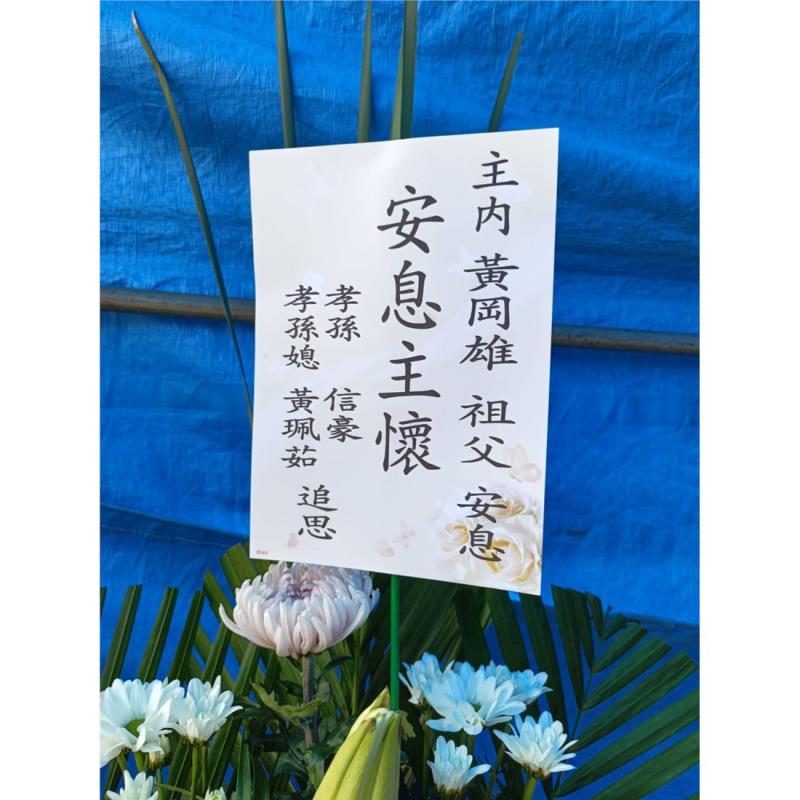 主内 黃岡雄 祖父 安息
安息主懷
孝孫 信豪
孝孫媳 黃珮茹
追思